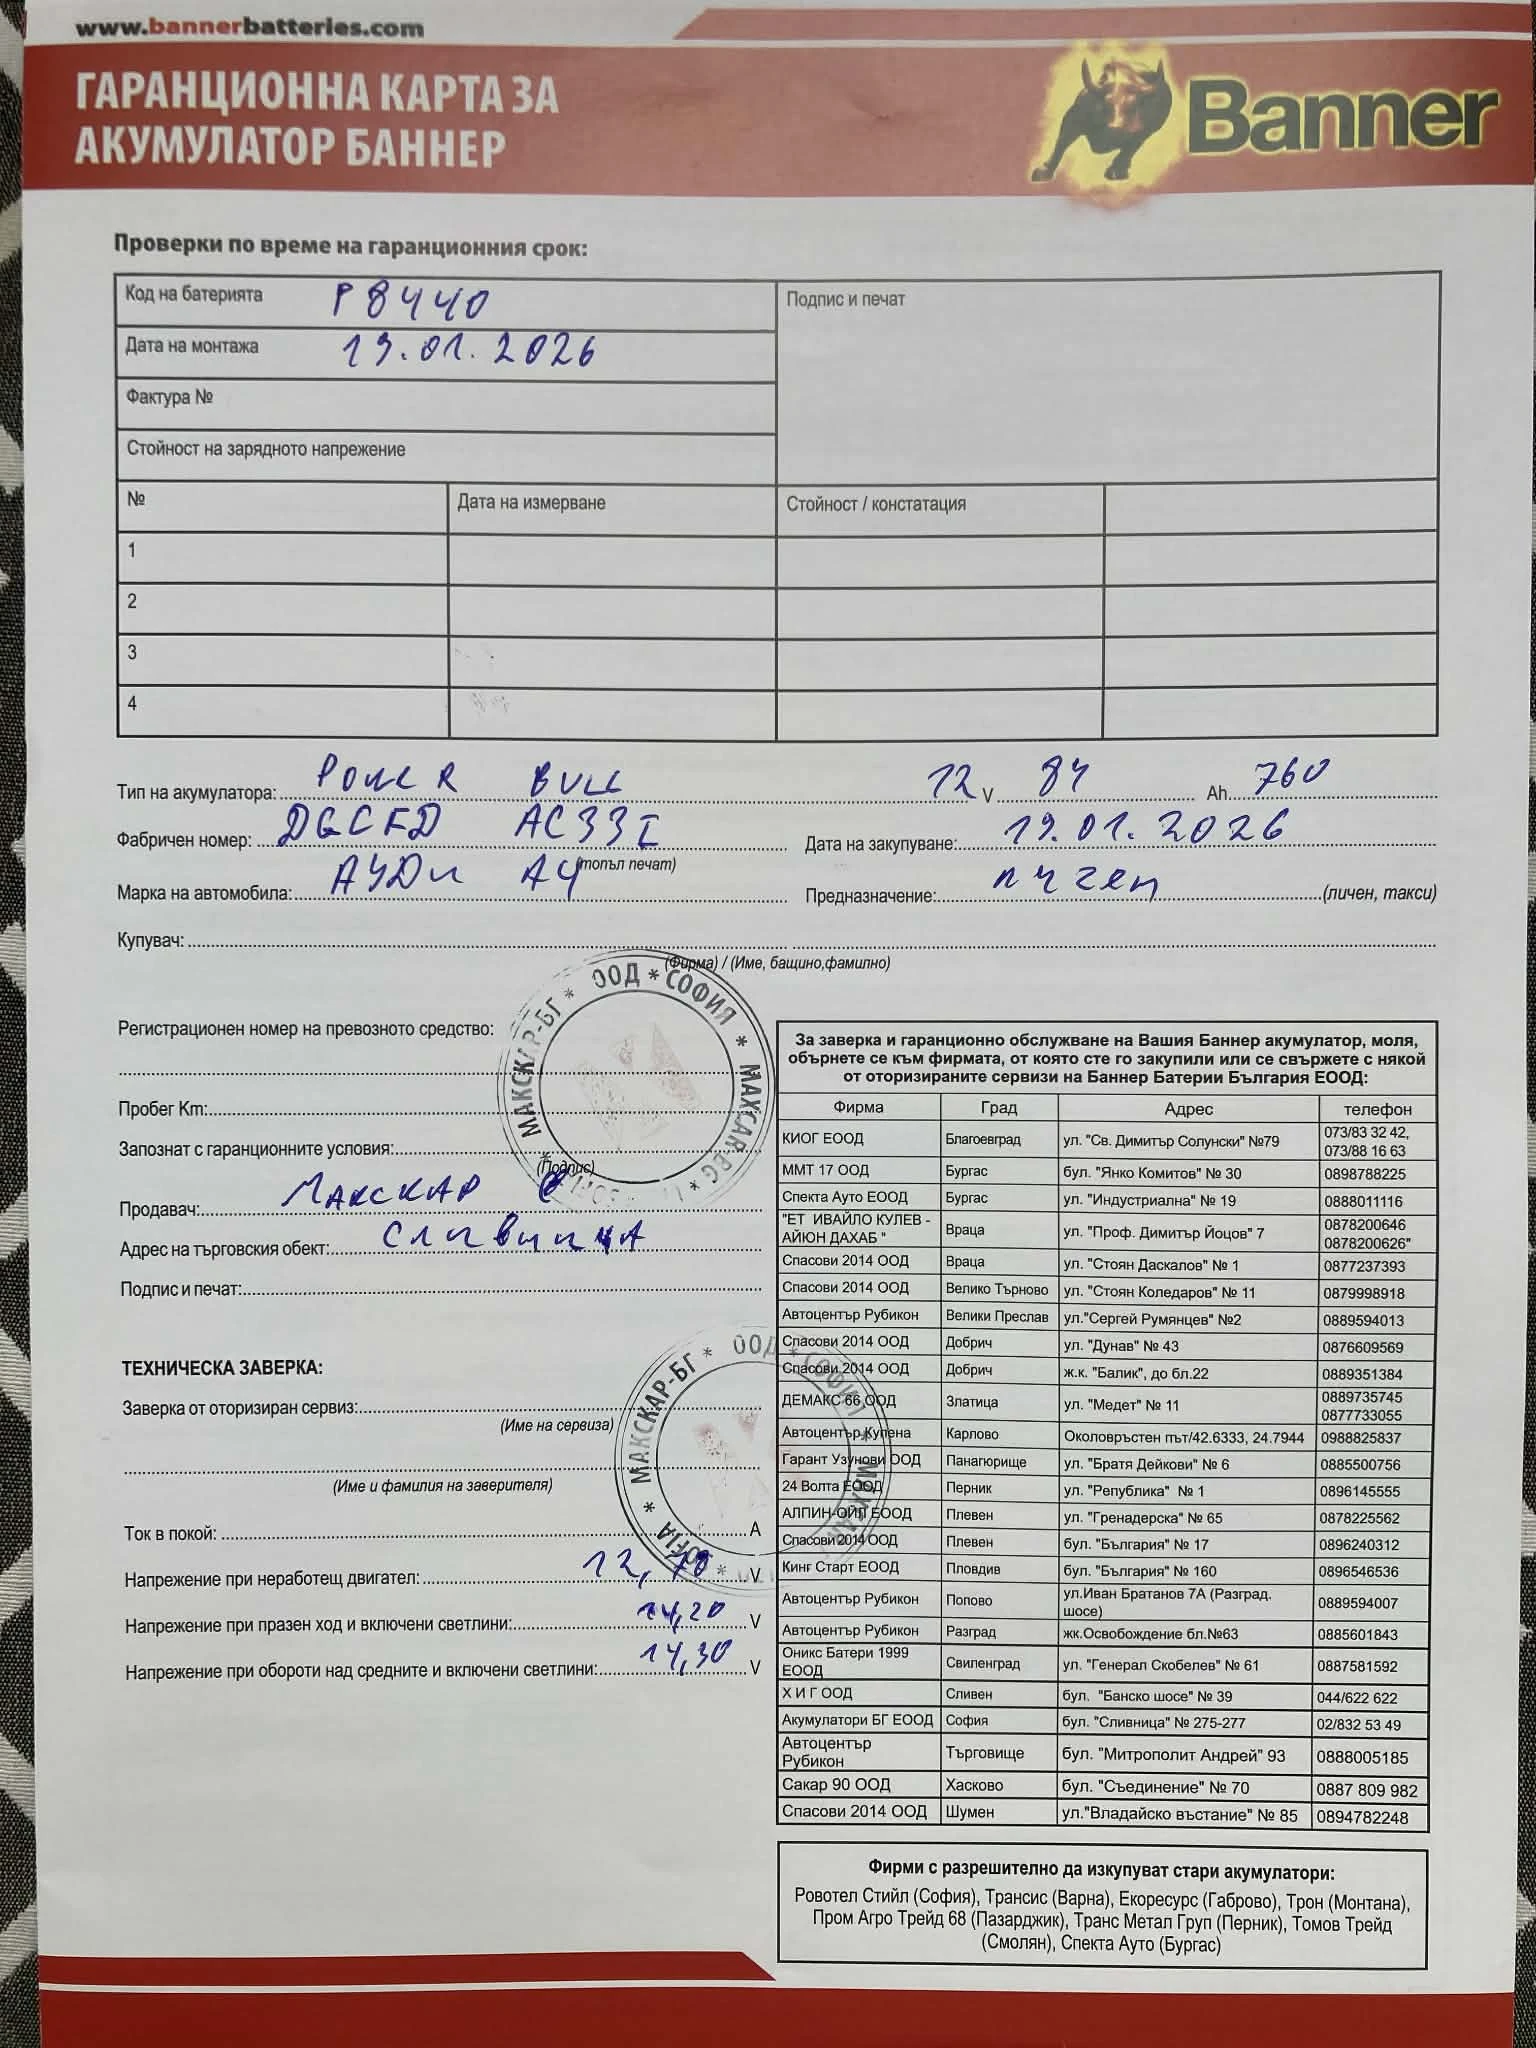 www.bannerbatteries.com
ГАРАНЦИОННА КАРТА ЗА
АКУМУЛАТОР БАННЕР
Banner
Проверки по време на гаранционния срок:
Код на батерията P8440
Подпис и печат
Дата на монтажа 19.01.2026
Фактура №
Стойност на зарядното напрежение
№ Дата на измерване Стойност / констатация
1
2
3
4
Тип на акумулатора: POWER BULL 12 V 84 Ah 760
Фабричен номер: AC33I Дата на закупуване: 19.01.2026
(топъл печат)
Марка на автомобила: АУДИ А4 Предназначение: личен (личен, такси)
Купувач:
(Фирма) / (Име, бащино,фамилно)
МАКСКАР-БГ * ООД * СОФИЯ * MAXCAR-BG *
Регистрационен номер на превозното средство:
Пробег Km:
Запознат с гаранционните условия:
(Подпис)
Продавач: МАКСКАР
Адрес на търговския обект: Сливница
Подпис и печат:
ТЕХНИЧЕСКА ЗАВЕРКА:
Заверка от оторизиран сервиз:
(Име на сервиза)
(Име и фамилия на заверителя)
МАКСКАР-БГ * ООД * СОФИЯ * SOFIA *
Ток в покой: A
Напрежение при неработещ двигател: 12,78 V
Напрежение при празен ход и включени светлини: 14,20 V
Напрежение при обороти над средните и включени светлини: 14,30 V
За заверка и гаранционно обслужване на Вашия Баннер акумулатор, моля,
обърнете се към фирмата, от която сте го закупили или се свържете с някой
от оторизираните сервизи на Баннер Батерии България ЕООД:
Фирма Град Адрес телефон
КИОГ ЕООД Благоевград ул. "Св. Димитър Солунски" №79 073/83 32 42, 073/88 16 63
ММТ 17 ООД Бургас бул. "Янко Комитов" № 30 0898788225
Спекта Ауто ЕООД Бургас ул. "Индустриална" № 19 0888011116
"ЕТ ИВАЙЛО КУЛЕВ - АЙЮН ДАХАБ " Враца ул. "Проф. Димитър Йоцов" 7 0878200646 0878200626"
Спасови 2014 ООД Враца ул. "Стоян Даскалов" № 1 0877237393
Спасови 2014 ООД Велико Търново ул. "Стоян Коледаров" № 11 0879998918
Автоцентър Рубикон Велики Преслав ул."Сергей Румянцев" №2 0889594013
Спасови 2014 ООД Добрич ул. "Дунав" № 43 0876609569
Спасови 2014 ООД Добрич ж.к. "Балик", до бл.22 0889351384
ДЕМАКС 66 ООД Златица ул. "Медет" № 11 0889735745 0877733055
Автоцентър Купена Карлово Околовръстен път/42.6333, 24.7944 0988825837
Гарант Узунови ООД Панагюрище ул. "Братя Дейкови" № 6 0885500756
24 Волта ЕООД Перник ул. "Република" № 1 0896145555
АЛПИН-ОЙЛ ЕООД Плевен ул. "Гренадерска" № 65 0878225562
Спасови 2014 ООД Плевен бул. "България" № 17 0896240312
Кинг Старт ЕООД Пловдив бул. "България" № 160 0896546536
Автоцентър Рубикон Попово ул.Иван Братанов 7А (Разград. шосе) 0889594007
Автоцентър Рубикон Разград жк.Освобождение бл.№63 0885601843
Оникс Батери 1999 ЕООД Свиленград ул. "Генерал Скобелев" № 61 0887581592
Х И Г ООД Сливен бул. "Банско шосе" № 39 044/622 622
Акумулатори БГ ЕООД София бул. "Сливница" № 275-277 02/832 53 49
Автоцентър Рубикон Търговище бул. "Митрополит Андрей" 93 0888005185
Сакар 90 ООД Хасково бул. "Съединение" № 70 0887 809 982
Спасови 2014 ООД Шумен ул."Владайско въстание" № 85 0894782248
Фирми с разрешително да изкупуват стари акумулатори:
Ровотел Стийл (София), Трансис (Варна), Екоресурс (Габрово), Трон (Монтана),
Пром Агро Трейд 68 (Пазарджик), Транс Метал Груп (Перник), Томов Трейд
(Смолян), Спекта Ауто (Бургас)